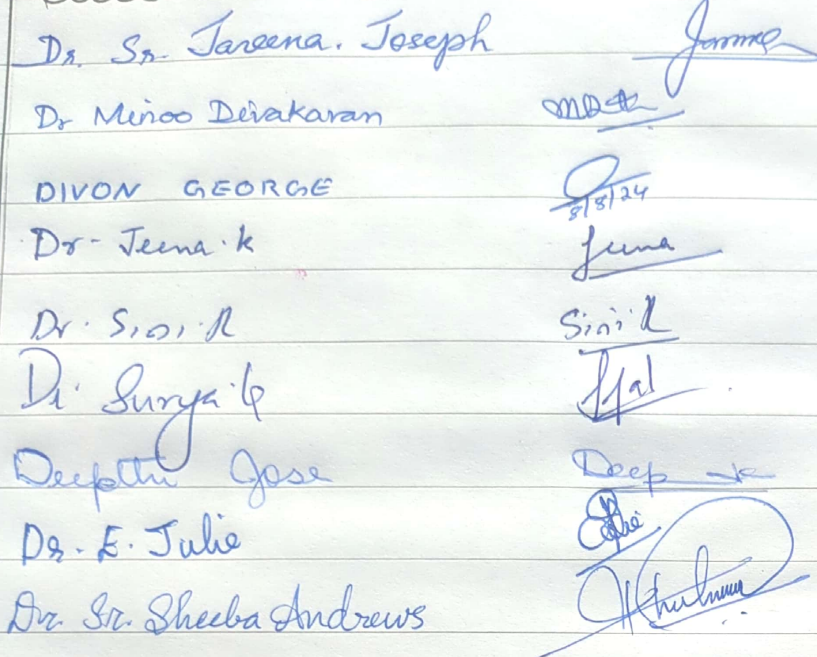 Dr. Sr. Jareena. Joseph
Dr Minoo Devakaran
DIVON GEORGE 8/8/24
Dr - Jeena. k Jeena
Dr. Sini. R Sini R
Dr. Surya. G
Deepthi Jose Deep
Dr. E. Julie
Dr. Sr. Sheeba Andrews